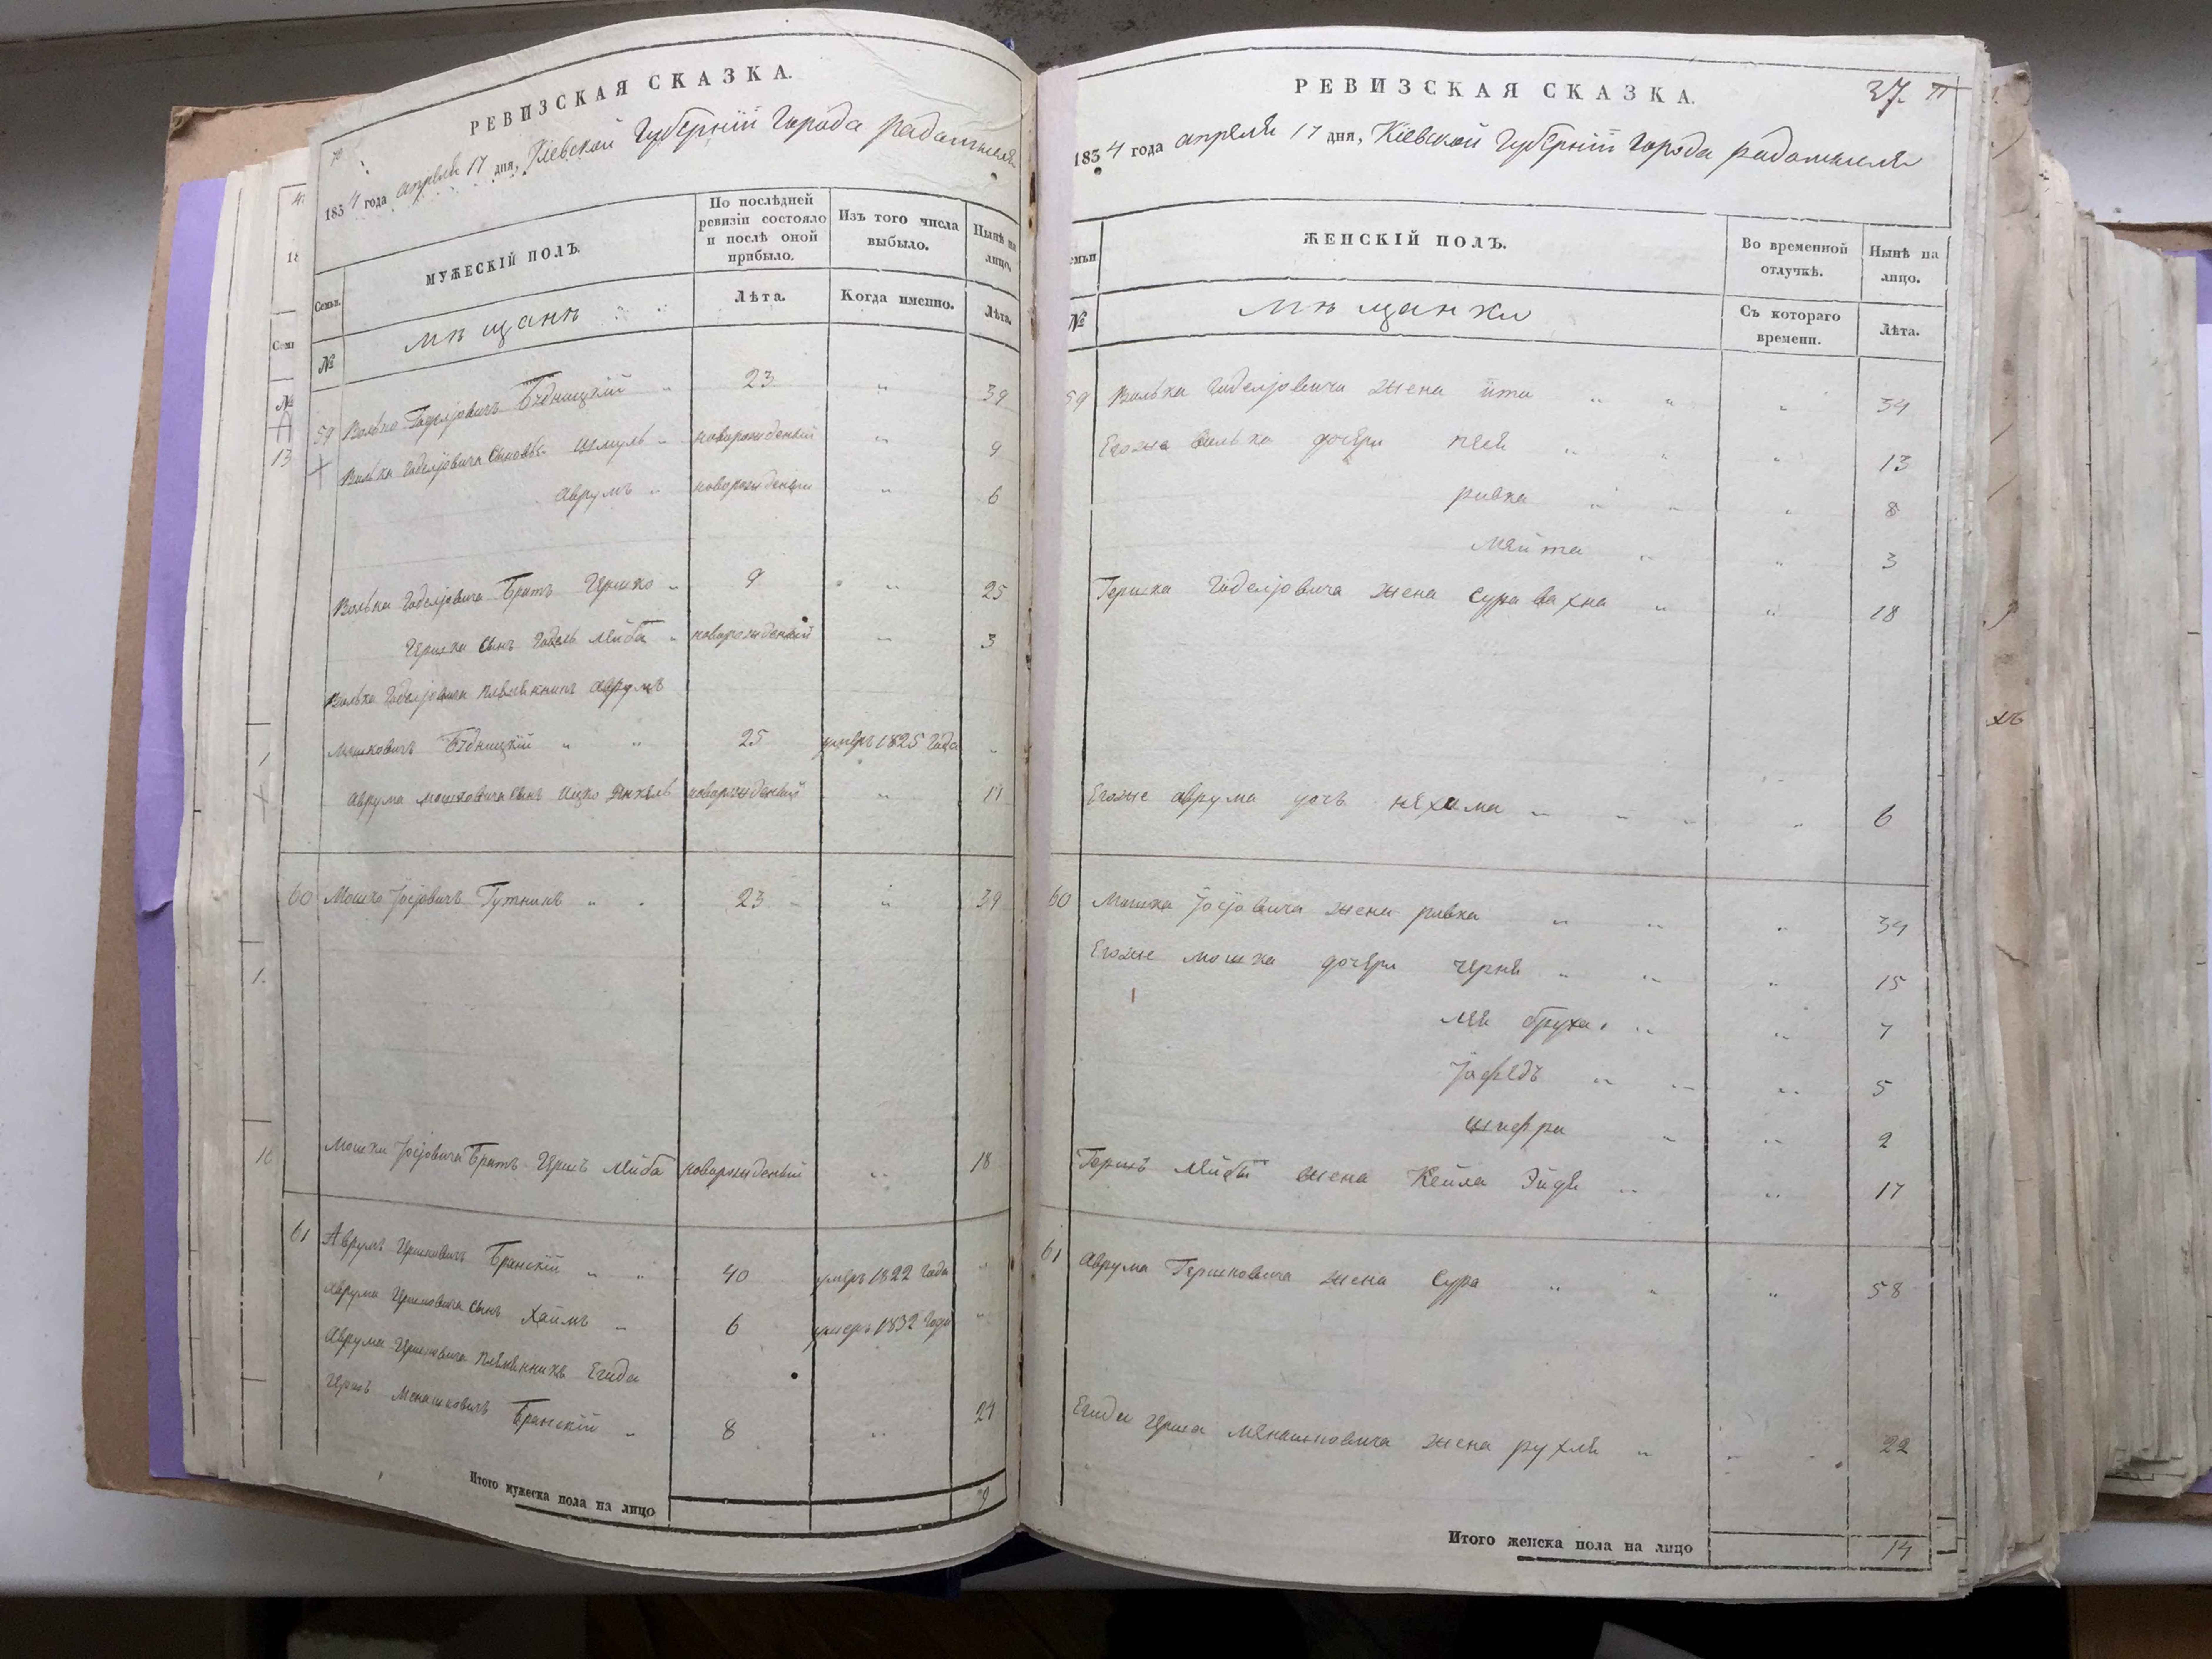 РЕВИЗСКАЯ СКАЗКА.
1834 года апреля 17 дня, Кіевской Губерніи Города радомысля
Семьи.
МУЖЕСКІЙ ПОЛЪ.
По послѣдней ревизіи состояло и послѣ оной прибыло.
Изъ того числа выбыло.
Нынѣ на лицо.
№
мѣщанѣ
Лѣта.
Когда именно.
Лѣта.
59 Волько Годелјовичъ Бѣдницкій " 23 " 39
Волька Годелјовича сыновья Шмуль " новорожденый " 9
Аврумъ " новорожденый " 6
Волька Годелјовича Братъ Гершко " 9 " 25
Гершка сынъ Годель Лейба " новорожденый " 3
Волька Годелјовича племенникъ Аврумъ
Мошковичъ Бѣдницкій " " 25 умеръ 1825 года "
Аврума Мошковича сынъ Ицко Янкель новорожденый "
60 Мошко Јосјовичъ Гутникъ " " 23 " 39
Мошки Јосјовича Братъ Гершъ Лейба новорожденый " 18
61 Аврумъ Гершковичъ Бранскій " " 40 умеръ 1822 года "
Аврума Гершковича сынъ Хаимъ " 6 умеръ 1832 года "
Аврума Гершковича племенникъ Егуда
Гершъ Менашковичъ Бранскій " 8 " 24
Итого мужеска пола на лицо 9
РЕВИЗСКАЯ СКАЗКА.
37.
1834 года апреля 17 дня, Кіевской Губерніи Города радомысля
емьи
ЖЕНСКІЙ ПОЛЪ.
Во временной отлучкѣ.
Нынѣ на лицо.
№
мѣщанки
Съ котораго времени.
Лѣта.
59 Волька Годелјовича жена Ита " " " 34
Егоже Волька дочери Песя " " " 13
ривка " " " 8
Мейта " " 3
Гершка Годелјовича жена Сура Вахна " " 18
Егоже Аврума дочь Нехама " " " " 6
60 Мошка Јосјовича жена ривка " " " 34
Егоже Мошка дочери Черня " " " 15
Лея бруха " " 7
" " " 5
Шифра " " 2
Гершъ Лейбы жена Кейла Эйдя " " 17
61 Аврума Гершковича жена Сура " " " 58
Егуди Герша Менашковича жена рухля " " " 22
Итого женска пола на лицо 14